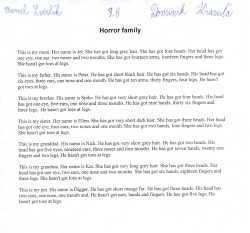 Marcel 3.A Dominik
Horror family
This is my mom. Her name is Jet. She has got long grey hair. She has got four heads. Her head has got
one eye, one ear, two noses and two mouths. She has got fourteen arms, fourteen fingers and three legs.
She hasn't got toes at legs.
This is my father. His name is Peter. He has got short black hair. He has got six heads. His head has got
six eyes, three ears, one nose and one mouth. He has got ten arms, thirty fingers, four legs. He hasn't
got toes at legs.
This is my brother. His name is Spike. He has got very short grey hair. He has got four heads. His head
has got one eye, five ears, one nose and three mouths. He has got nine hands, thirty six fingers and
three legs. He hasn't got toes at legs.
This is my sister. Her name is Ellen. She has got very short dark hair. She has got three heads. Her head
has got one ear, two ears, one nose and two mouths. She has got two hands, four fingers and two
legs. She hasn't got toes at legs.
This is my granddad. His name is Nick. He has got very short grey hair. He has got two heads. His
head has got five eyes, nineteen ears, three noses and four mouths. He has got seven hands, twenty
fingers and two legs. He hasn't got toes at legs.
This is my grandma. Her name is Kat. She has got very long grey hair. She has got three heads. Her
head has got one eye, two ears, one nose and two mouths. She has got six hands, eighteen fingers and
three legs. She hasn't got toes at legs.
This is my pet. His name is Digger. He has got short orange fur. He has got three heads. His head has
two eyes, one nose and one mouth. He hasn't got ears, hands and fingers. He has got five legs. He
hasn't got toes at legs.